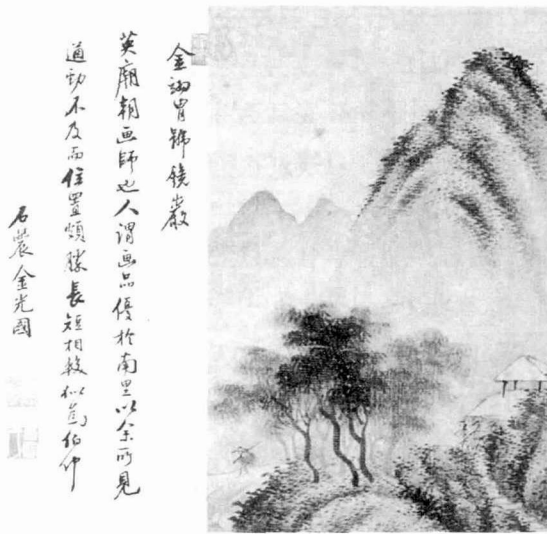 金翊胄號鏡巖
英廟朝画師也人謂画品優於南里以余所見
遒勁不及而位置頗勝長短相較似爲伯仲
石農金光國